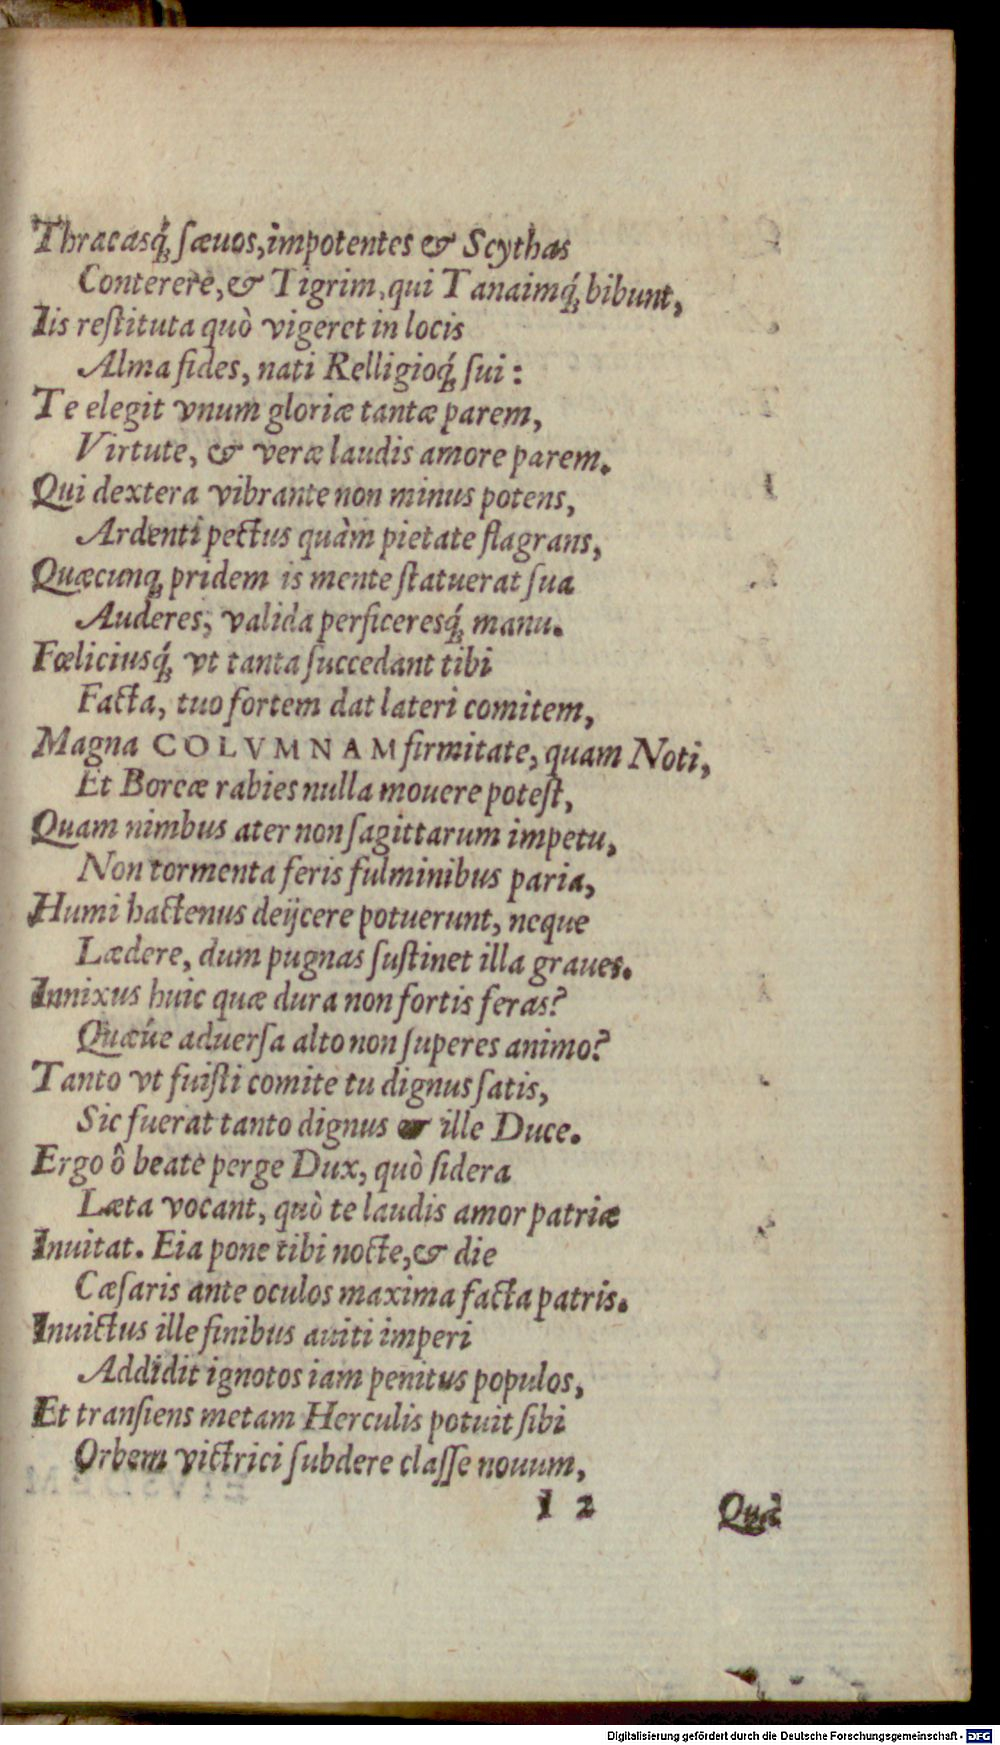 Thracasq́; ſæuos, impotentes & Scythas
Conterere, & Tigrim, qui Tanaimq́; bibunt,
Iis reſtituta quò vigeret in locis
Alma fides, nati Relligioq́; ſui:
Te elegit vnum gloriæ tantæ parem,
Virtute, & veræ laudis amore parem.
Qui dextera vibrante non minus potens,
Ardenti pectus quàm pietate flagrans,
Quæcunq; pridem is mente ſtatuerat ſua
Auderes; valida perficeresq́; manu.
Fœliciusq́; vt tanta ſuccedant tibi
Facta, tuo fortem dat lateri comitem,
Magna COLVMNAM firmitate, quam Noti,
Et Boreæ rabies nulla mouere poteſt,
Quam nimbus ater non ſagittarum impetu,
Non tormenta feris fulminibus paria,
Humi hactenus deijcere potuerunt, neque
Lædere, dum pugnas ſuſtinet illa graues.
Innixus huic quæ dura non fortis feras?
Quæúe aduerſa alto non ſuperes animo?
Tanto vt fuiſti comite tu dignus ſatis,
Sic fuerat tanto dignus & ille Duce.
Ergo ô beate perge Dux, quò ſidera
Læta vocant, quò te laudis amor patriæ
Inuitat. Eia pone tibi nocte, & die
Cæſaris ante oculos maxima facta patris.
Inuictus ille finibus auiti imperi
Addidit ignotos iam penitus populos,
Et tranſiens metam Herculis potuit ſibi
Orbem victrici ſubdere claſſe nouum,
I 2
Digitalisierung gefördert durch die Deutsche Forschungsgemeinschaft - DFG